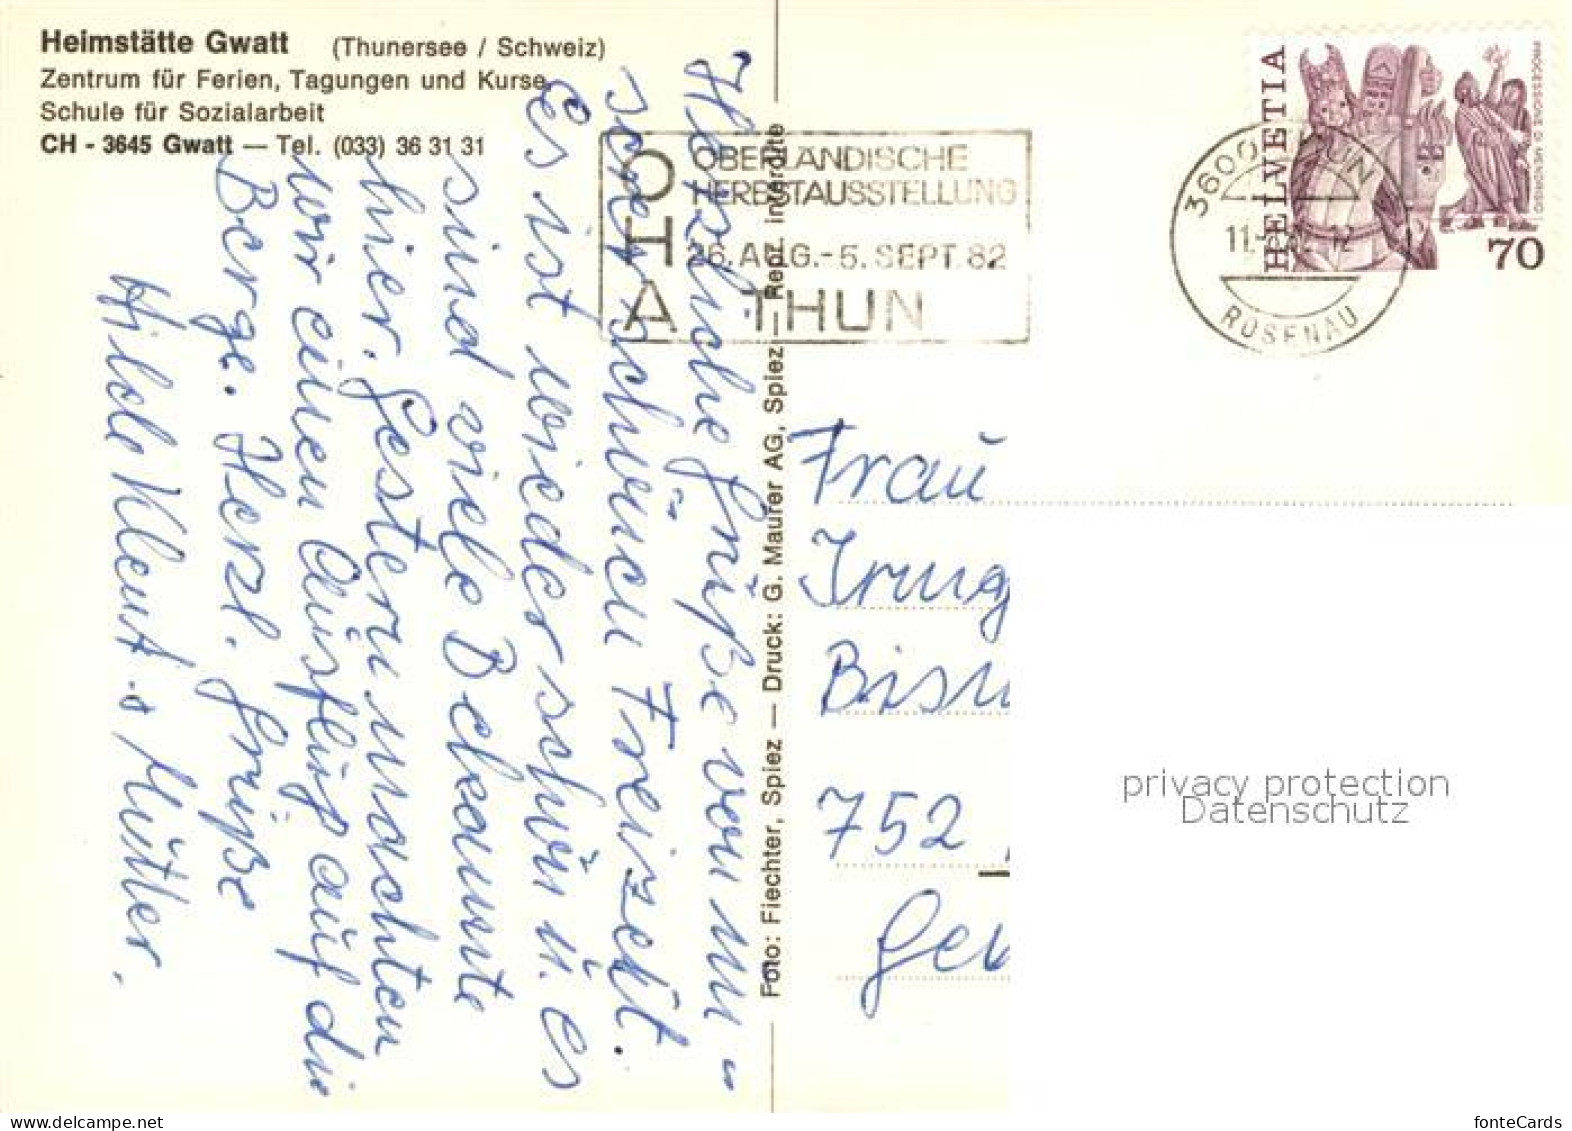 Heimstätte Gwatt (Thunersee / Schweiz)
Zentrum für Ferien, Tagungen und Kurse
Schule für Sozialarbeit
CH - 3645 Gwatt — Tel. (033) 36 31 31
Herzliche Grüße von un-
serer schönen Freizeit.
Es ist wieder schön u. es
sind viele Bekannte
hier. Gestern machten
wir einen Ausflug auf die
Berge. Herzl. Grüße
Hilde u. Mutter.
Foto: Fiechter, Spiez — Druck: G. Maurer AG, Spiez — Repr. interdite
OHA
OBERLÄNDISCHE
HERBSTAUSSTELLUNG
26. AUG.-5. SEPT. 82
THUN
3600 THUN
11.
12
ROSENAU
HELVETIA
PROCESSIONE DI MENDRISIO
70
Frau
Irmg
Bism
752
Ger
privacy protection
Datenschutz
www.delcampe.net
fonteCards